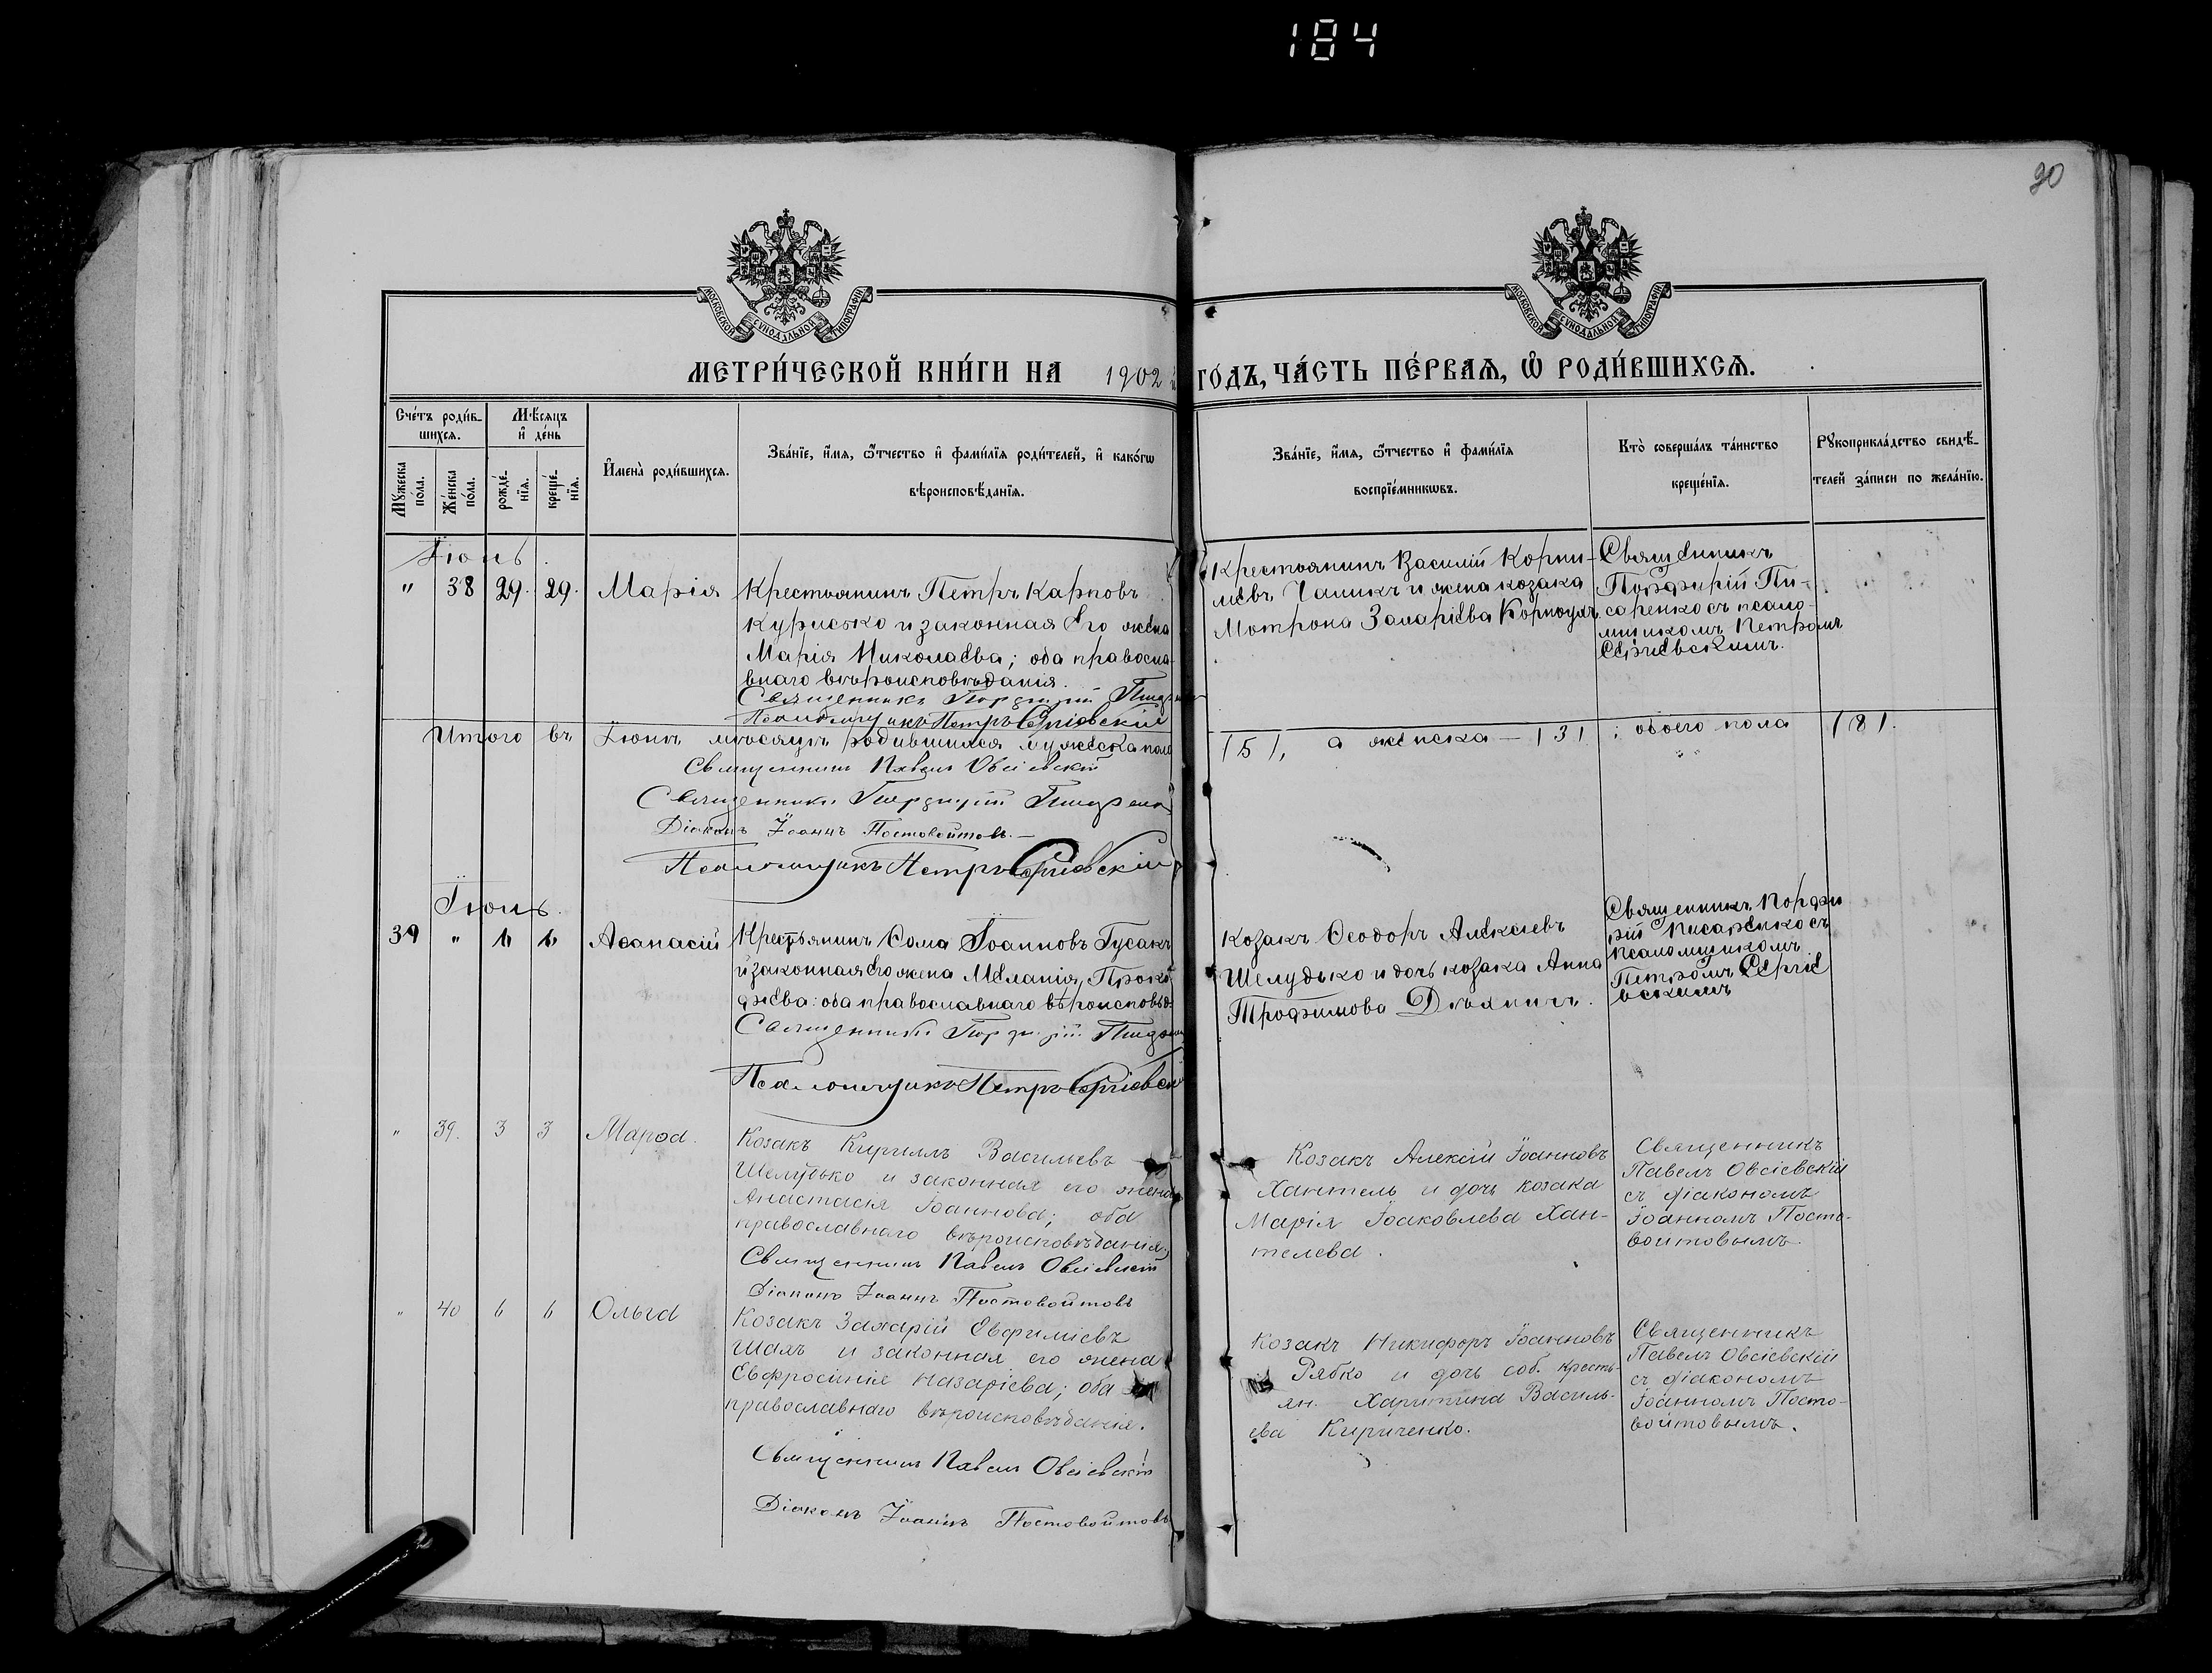 184
90
МОСКОВСКОЙ СѴНОДАЛЬНОЙ ТИПОГРАФІИ
МОСКОВСКОЙ СѴНОДАЛЬНОЙ ТИПОГРАФІИ
МЕТРИ́ЧЕСКОЙ КНИ́ГИ НА 1902 ГО́ДЪ, ЧА́СТЬ ПЕ́РВАЯ, Ѡ҆ РОДИ́ВШИХСЯ.
Сче́тъ роди́в-
шихся.
Мѣ́сяцъ
и҆ де́нь
Мꙋ́жеска
по́ла.
Же́нска
по́ла.
рожде́-
нїя.
креще́-
нїя.
И҆мена̀ роди́вшихся.
Зва́нїе, и҆́мя, ѻ҆́тчество и҆ фами́лїя роди́телей, и҆ како́гѡ
вѣроисповѣ́данїя.
Зва́нїе, и҆́мя, ѻ҆́тчество и҆ фами́лїя
воспрїе́мникѡвъ.
Кто̀ соверша́лъ та́инство
креще́нїя.
Рꙋкоприкла́дство свидѣ́-
телей за́писи по жела́нїю.
" 38 29. 29. Марія
Крестьянинъ Петръ Карповъ
и законная его жена
Марія Николаева; оба правосла-
внаго вѣроисповѣданія.
Священникъ Порфирій
Псаломщикъ Петръ Сергіевскій
Крестьянинъ Василій Корни-
лѣевъ и жена козака
Мотрона Захаріева
Священникъ
Порфирій Пи-
саренко съ псало-
мщикомъ Петромъ
Сергіевскимъ.
Итого въ Іюнѣ мѣсяцѣ родившихся мужеска пола
(5), а женска — (3) ; обоего пола (8).
Священникъ Павелъ Овсіевскій
Священникъ Порфирій
Діаконъ Іоаннъ Постовойтовъ.—
Псаломщикъ Петръ Сергіевскій
39 " Аѳанасій
Крестьянинъ Ѳома Іоанновъ Гусакъ
и законная его жена Меланія Проко-
фіева: оба православнаго вѣроисповѣд.
Священникъ Порфирій
Псаломщикъ Петръ Сергіевскій
Козакъ Ѳеодоръ Алексіевъ
Шелудько и дочь козака Анна
Трофимова
Священникъ Порфи
рій Писаренко съ
псаломщикомъ
Петромъ Сергіе
вскимъ
" 39. 3 3 Марѳа.
Козакъ Кириллъ Васильевъ
Шелудько и законная его жена
Анастасія Іоаннова; оба
православнаго вѣроисповѣданія.
Священникъ Павелъ Овсіевскій
Діаконъ Іоаннъ Постовойтовъ
Козакъ Алексій Іоанновъ
Хантель и дочь козака
Марія Іоаковлева Хан-
телева.
Священникъ
Павелъ Овсіевскій
съ діакономъ
Іоанномъ Посто-
войтовымъ.
" 40 6 6 Ольга
Козакъ Захарій Евфиміевъ
и законная его жена
Евфросінія Назаріева; оба
православнаго вѣроисповѣданія.
Священникъ Павелъ Овсіевскій
Діаконъ Іоаннъ Постовойтовъ
Козакъ Никифоръ Іоанновъ
Рябко и дочь соб. кресть-
ян. Харитина Василь-
ева Кириченко.
Священникъ
Павелъ Овсіевскій
съ діакономъ
Іоанномъ Посто-
войтовымъ.